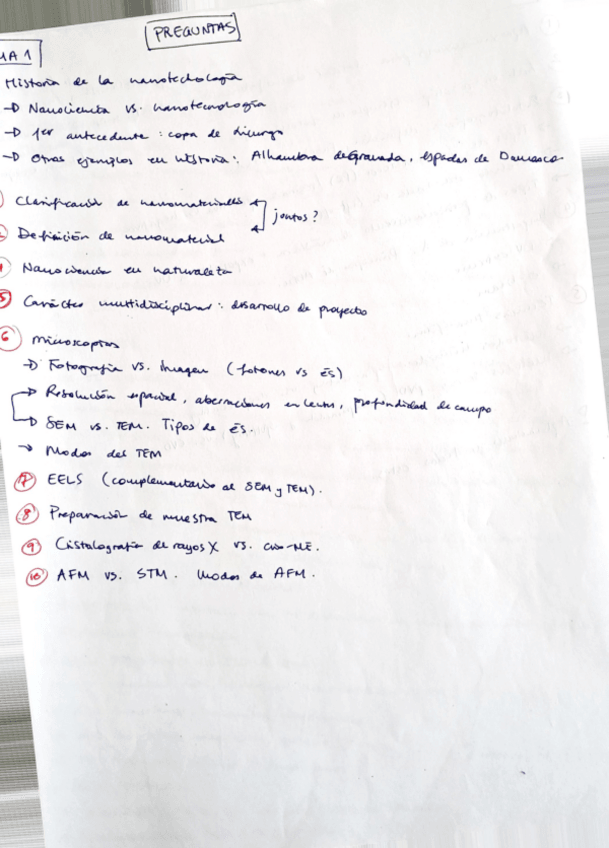 PREGUNTAS
MA 1
Historia de la nanotecnología
→ Nanociencia vs. nanotecnología
→ 1er antecedente: copa de licurgo
→ Otros ejemplos en historia: Alhambra de Granada, espadas de Damasco
Clasificación de nanomateriales
juntos?
Definición de nanomaterial
Nanociencia en naturaleza
5 Carácter multidisciplinar: desarrollo de proyecto
6 Microscopios
→ Fotografía vs. Imagen (fotones vs ēs)
→ Resolución espacial, aberraciones en lentes, profundidad de campo
→ SEM vs. TEM. Tipos de ēs.
→ Modos del TEM
7 EELS (complementario al SEM y TEM).
8 Preparación de muestra TEM
9 Cristalografía de rayos X vs. crio-ME.
10 AFM vs. STM. Modos de AFM.